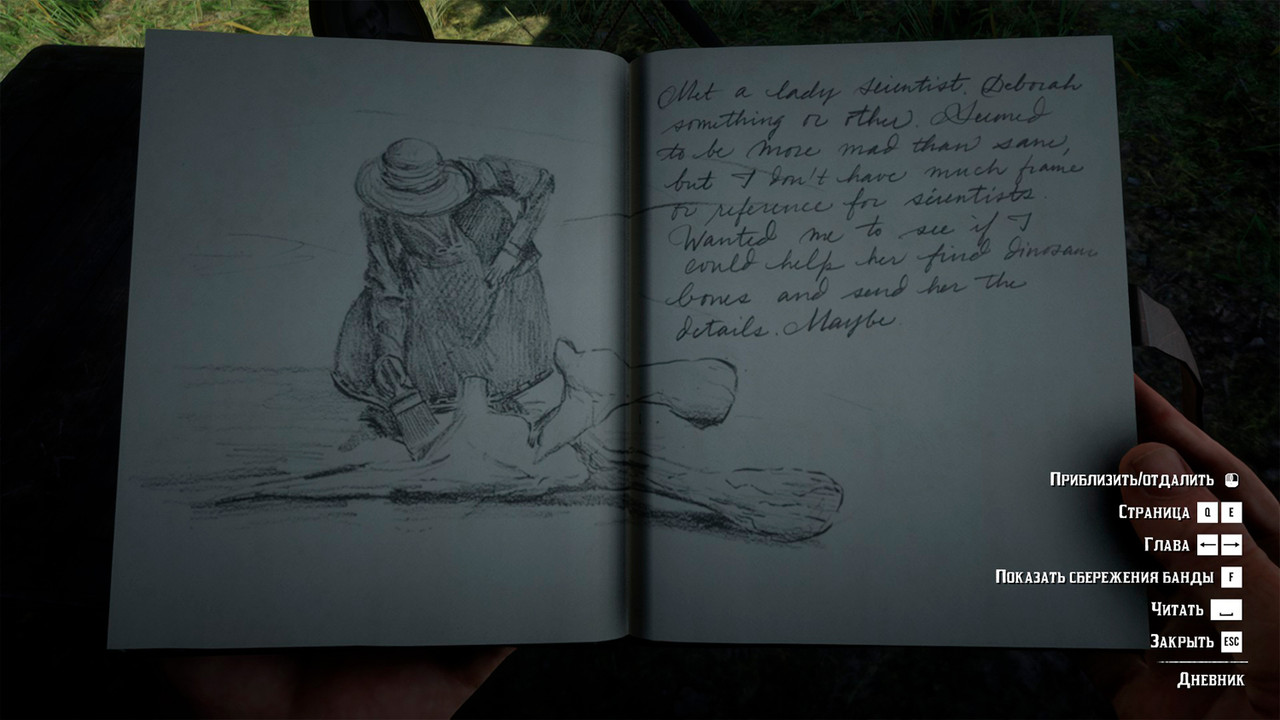 Met a lady scientist. Deborah
something or other. Seemed
to be more mad than sane,
but I don't have much frame
or reference for scientists.
Wanted me to see if I
could help her find dinosaur
bones and send her the
details. Maybe.
Приблизить/отдалить
Страница Q E
Глава ← →
Показать сбережения банды F
Читать
Закрыть ESC
Дневник